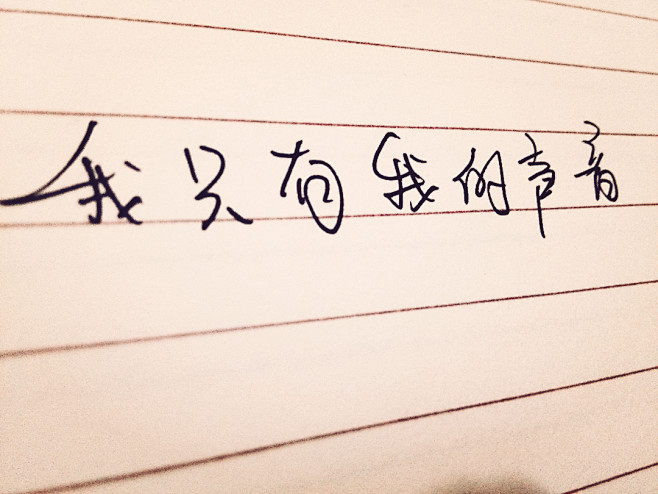 我只有我的声音